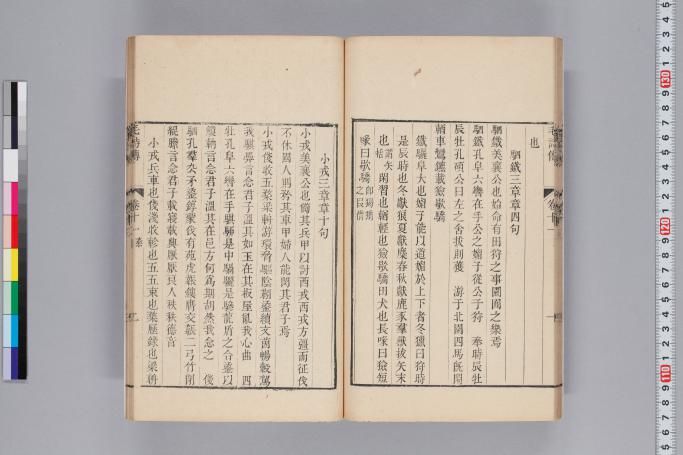 也
駟鐵三章章四句
駟鐵美襄公也始命有田狩之事園囿之樂焉
駟鐵孔阜六轡在手公之媚子從公于狩　奉時辰牡
辰牡孔碩公曰左之舍拔則獲　游于北園四馬既閑
輶車鸞鑣載獫歇驕
鐵驪阜大也媚子能以道媚於上下者冬獵曰狩時
是辰時也冬獻狼夏獻麋春秋獻鹿豕羣獸拔矢末
也閑習也輶輕也獫歇驕田犬也長喙曰獫短
喙曰歇驕
小戎三章章十句
小戎美襄公也備其兵甲以討西戎西戎方彊而征伐
不休國人則矜其車甲婦人能閔其君子焉
小戎俴收五楘梁輈游環脅驅陰靷鋈續文茵暢轂駕
我騏馵言念君子溫其如玉在其板屋亂我心曲　四
牡孔阜六轡在手騏駵是中騧驪是驂龍盾之合鋈以
觼軜言念君子溫其在邑方何為期胡然我念之　俴
駟孔羣厹矛鋈錞蒙伐有苑虎韔鏤膺交韔二弓竹閉
緄縢言念君子載寢載興厭厭良人秩秩德音
小戎兵車也俴淺收軫也五五束也楘歷錄也梁輈